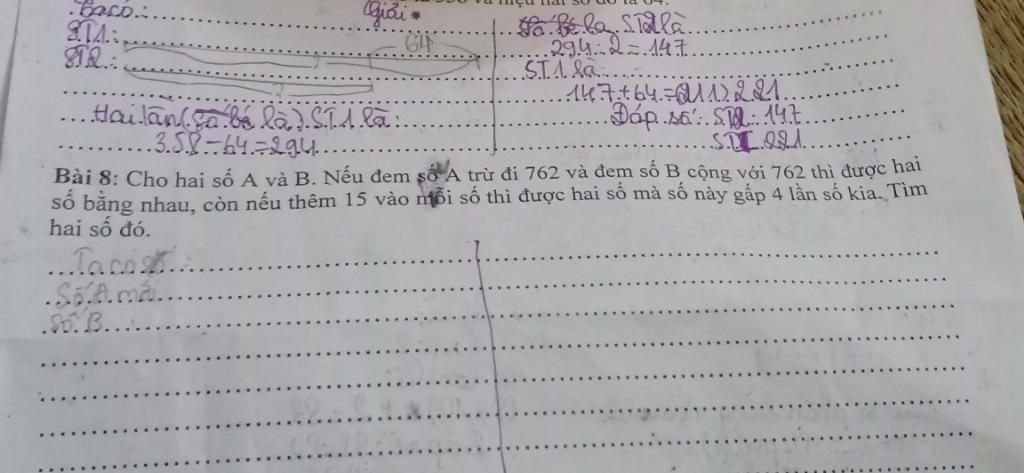 Giải
Taco:
ST1:
64
ST2:
?
?
Hai lần (số bé là) ST1 là:
358-64=294
số bé là ST2 là
294:2=147
ST1 là:
147+64=(211) 221
Đáp số: ST2 147
ST1 221
Bài 8: Cho hai số A và B. Nếu đem số A trừ đi 762 và đem số B cộng với 762 thì được hai
số bằng nhau, còn nếu thêm 15 vào mỗi số thì được hai số mà số này gấp 4 lần số kia. Tìm
hai số đó.
Ta có
Số A mới
Số B